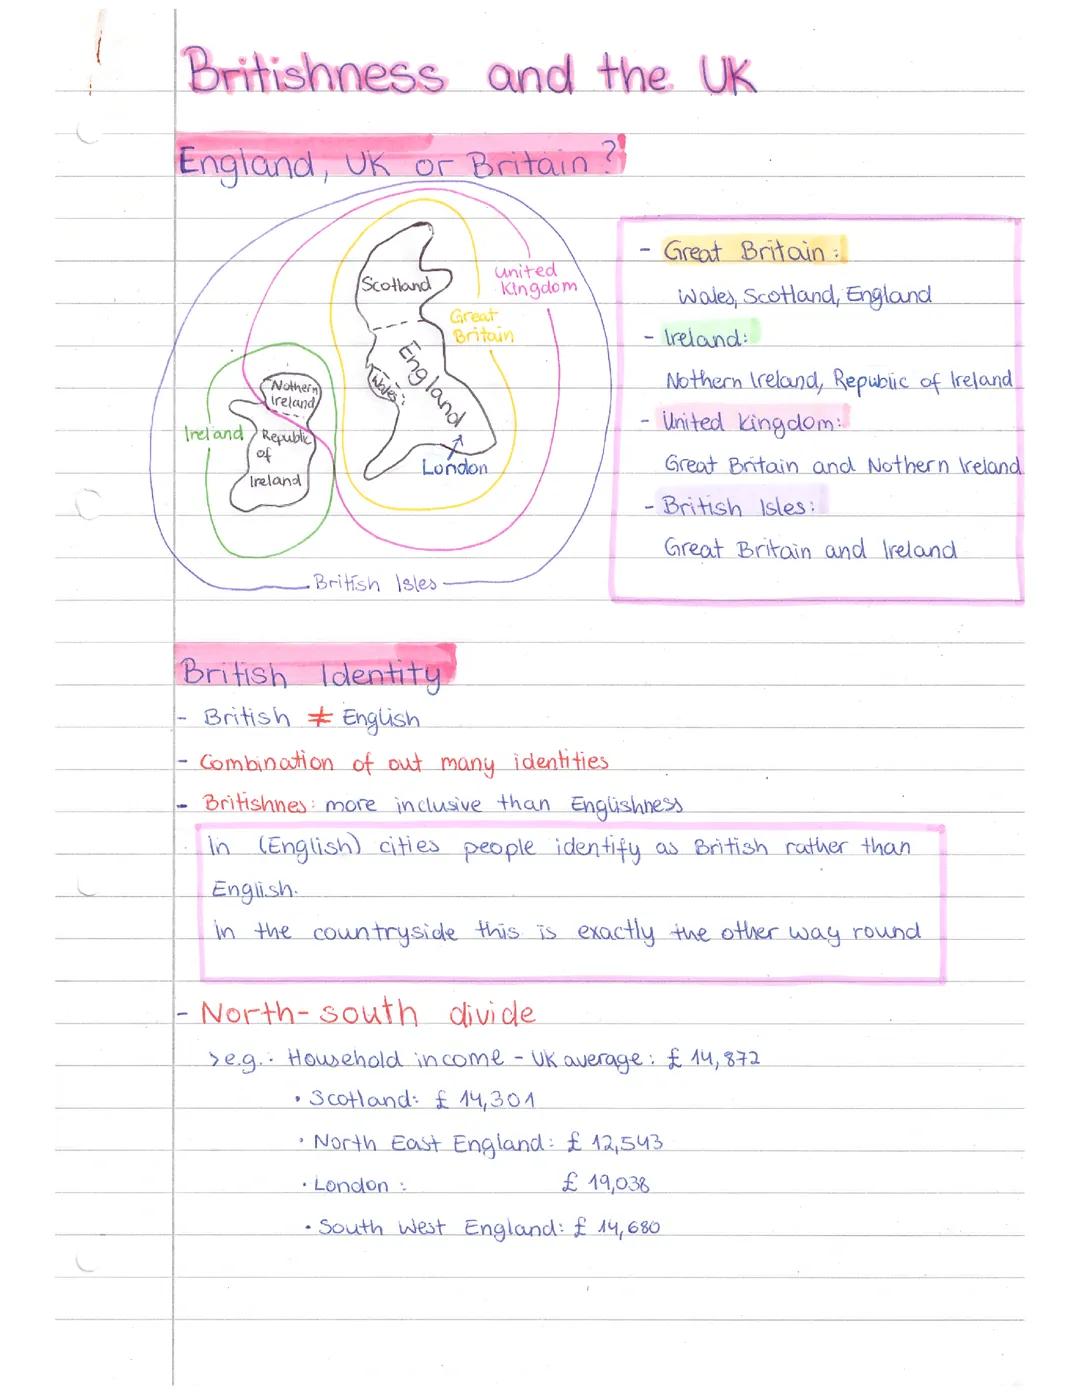 Britishness and the UK
England, UK or Britain?
Scotland
United
Kingdom
Great
Britain
England
Wales
Nothern
Ireland
Ireland
Republic
of
Ireland
London
British Isles
- Great Britain:
Wales, Scotland, England
- Ireland:
Nothern Ireland, Republic of Ireland
- United Kingdom:
Great Britain and Nothern Ireland
- British Isles:
Great Britain and Ireland
British Identity
- British ≠ English
- Combination of out many identities
- Britishnes: more inclusive than Englishness
In (English) cities people identify as British rather than
English.
In the countryside this is exactly the other way round
- North-south divide
>e.g.: Household income - UK average: £ 14,872
• Scotland: £ 14,301
• North East England: £ 12,543
• London: £ 19,038
• South West England: £ 14,680